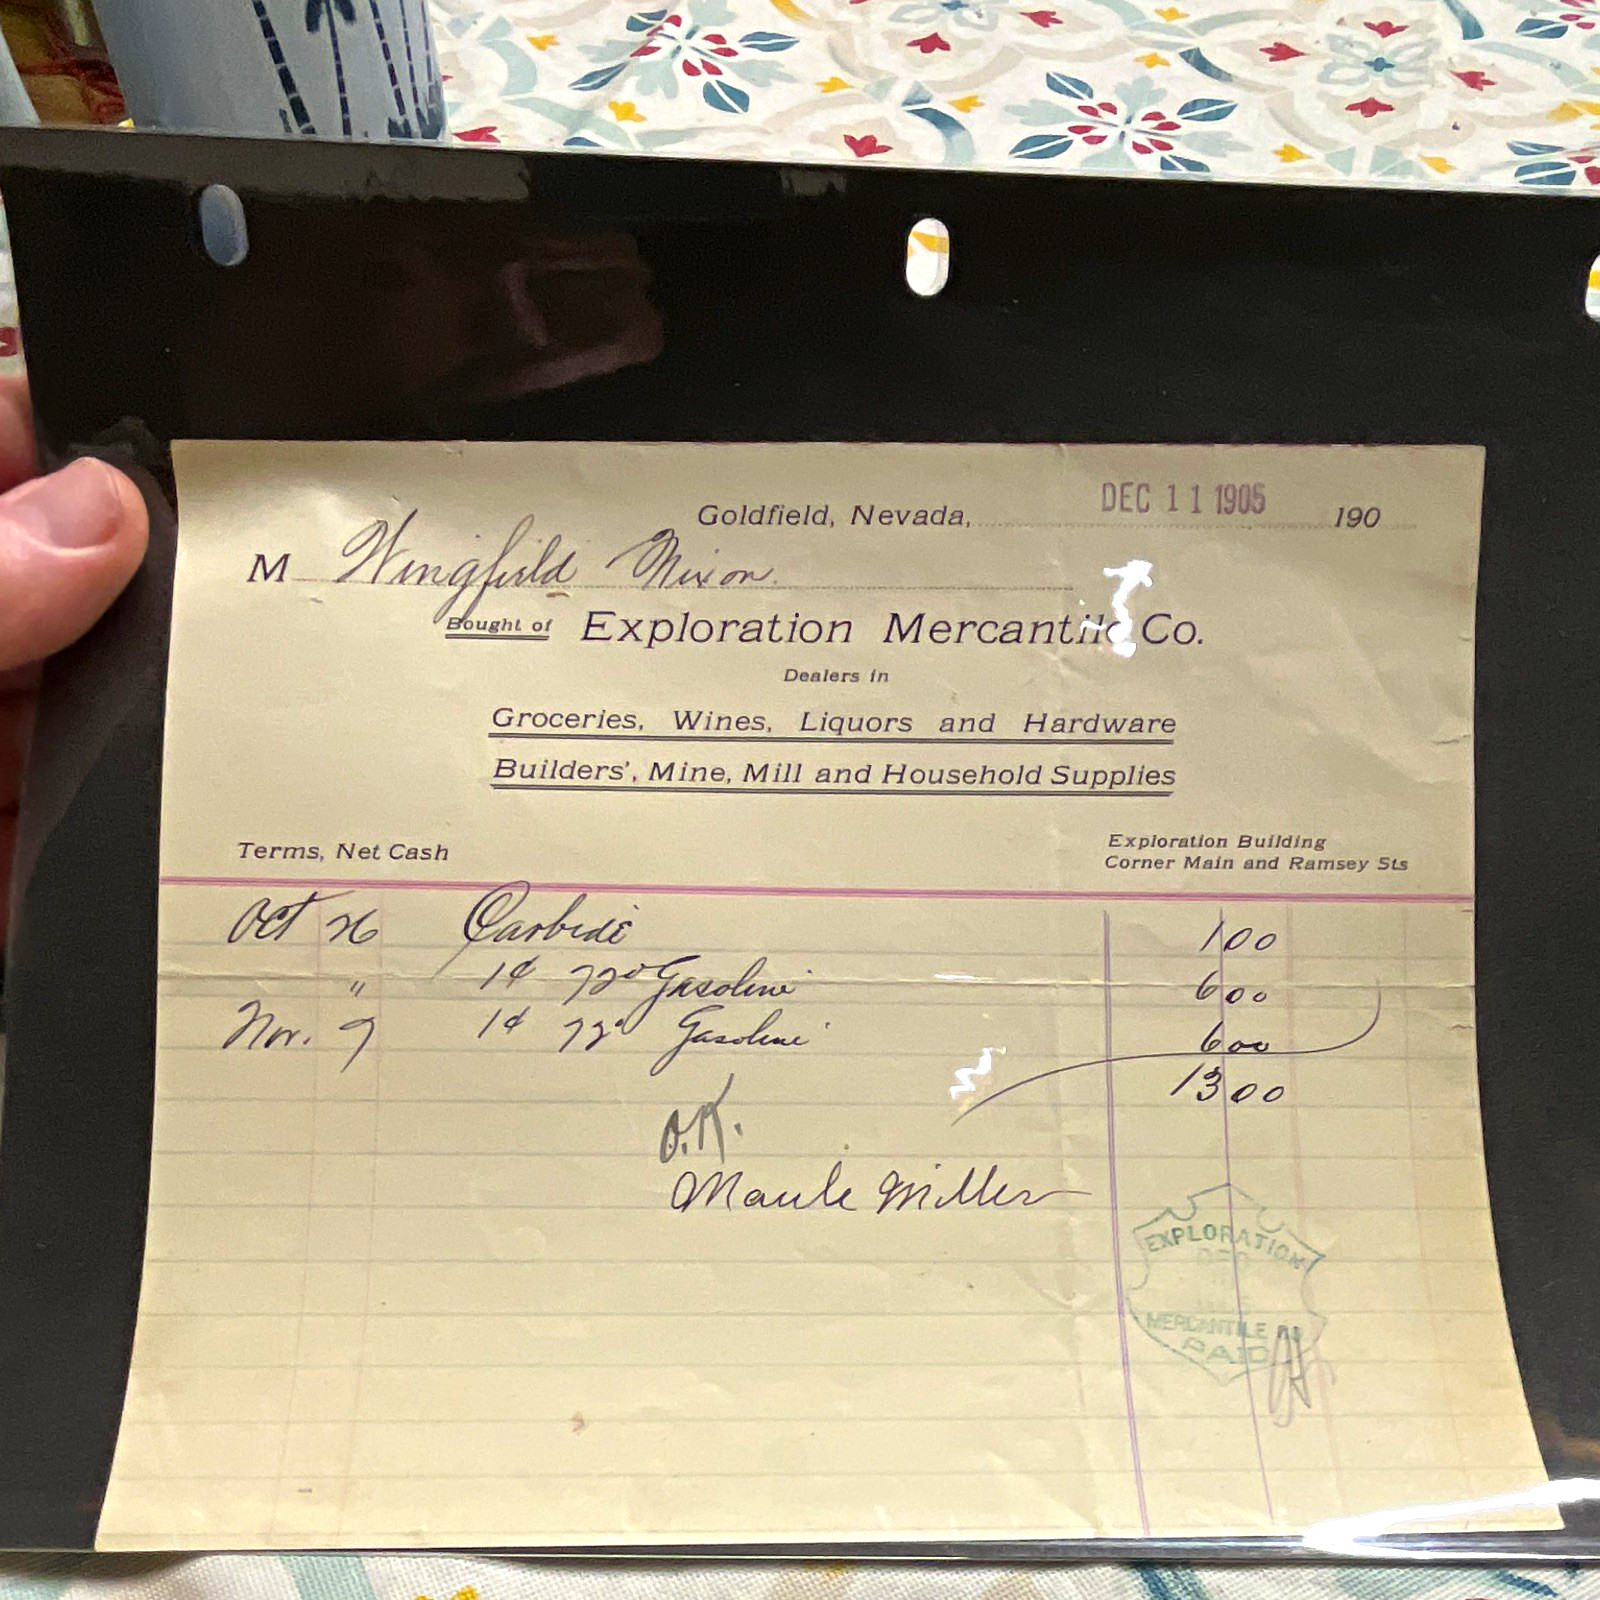 Goldfield, Nevada, DEC 11 1905 190
M Wingfield Nixon
Bought of Exploration Mercantile Co.
Dealers in
Groceries, Wines, Liquors and Hardware
Builders', Mine, Mill and Household Supplies
Terms, Net Cash
Exploration Building
Corner Main and Ramsey Sts
Oct 26 Carbide 1 00
" 1 ¢ 72° Gasoline 6 00
Nov. 9 1 ¢ 72° Gasoline 6 00
13 00
O.K.
Maule Miller
EXPLORATION
DEC
MERCANTILE CO
PAID